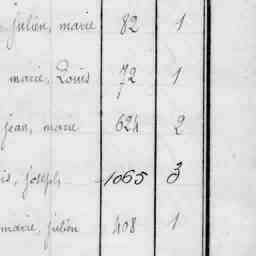 julien, marie 82 1
marie, Louis 72 1
jean, marie 624 2
is, joseph 1065 3
marie, julien 408 1